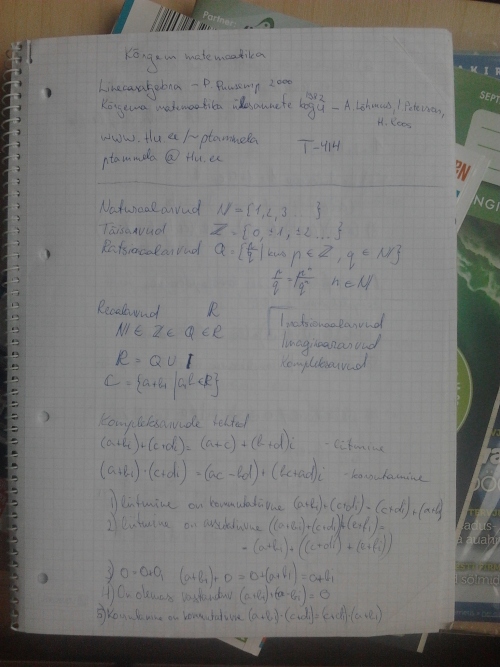 Kõrgem matemaatika
Lineaaralgebra – P. Puusemp 2000
Kõrgema matemaatika ülesannete kogu – A. Lõhmus, I. Petersen,
1982
H. Roos
www.ttu.ee/~ptammela
T-414
ptammela @ ttu.ee
Naturaalarvud N = {1,2,3 ... }
Täisarvud Z = {0, ±1, ±2 ... }
Ratsionaalarvud Q = {p/q | kus p ∈ Z, q ∈ N}
n ∈ N
Reaalarvud R
N ∈ Z ∈ Q ∈ R
R = Q ∪ I
C = {a+bi | a,b ∈ R}
Irratsionaalarvud
Imaginaararvud
Kompleksarvud
Kompleksarvude tehted
(a+bi)+(c+di) = (a+c)+(b+d)i - liitmine
(a+bi)·(c+di) = (ac-bd)+(bc+ad)i - korrutamine
1) liitmine on kommutatiivne (a+bi)+(c+di) = (c+di)+(a+bi)
2) liitmine on assotiatiivne ((a+bi)+(c+di))+(e+fi) =
= (a+bi)+((c+di)+(e+fi))
3) 0 = 0+0i (a+bi)+0 = 0+(a+bi) = a+bi
4) On olemas vastandarv (a+bi)+(-a-bi) = 0
5) Korrutamine on kommutatiivne (a+bi)·(c+di) = (c+di)·(a+bi)
Partner
SEPT